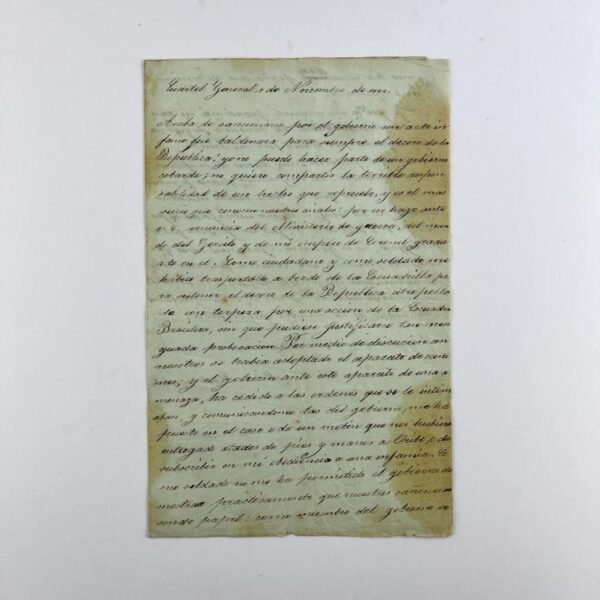 Cuartel General, 2 de Noviembre de 1844.
Acaba de sancionarse por el gobierno un acto in
fame que baldonara para siempre el decoro de la
Republica: yo no puedo hacer parte de un gobierno
cobarde; no quiero compartir la terrible respon
sabilidad de un hecho que reprueba, y es el mas
sucio que conocen nuestros anales: por eso hago ante
V. E. renuncia del Ministerio de guerra, del man
do del Gercito y de mi empleo de Coronel gradu
ado en él. Como ciudadano y como soldado me
habia trasportado a bordo de la Escuadrilla pa
ra sostener el decoro de la Republica atropella
do con torpeza por una accion de la Escuadra
Brasilera, sin que pudiese justificarse tan men
guada probocacion. Por medio de discucion an
nosotros se habia adoptado el aparato de caño
nes; y el gobierno ante este aparato de una a
menaza, ha cedido a las ordenes que se le intim
aban y comunicandome las del gobierno, me ha
puesto en el caso o de un motin que nos hubiera
entregado atados de pies y manos a Oribe, o de
subscribir en mi obediencia a una infamia. Co
mo soldado no me ha permitido el gobierno de
mostrar prácticamente que nuestros cañones no
son de papel: como miembro del gobierno no